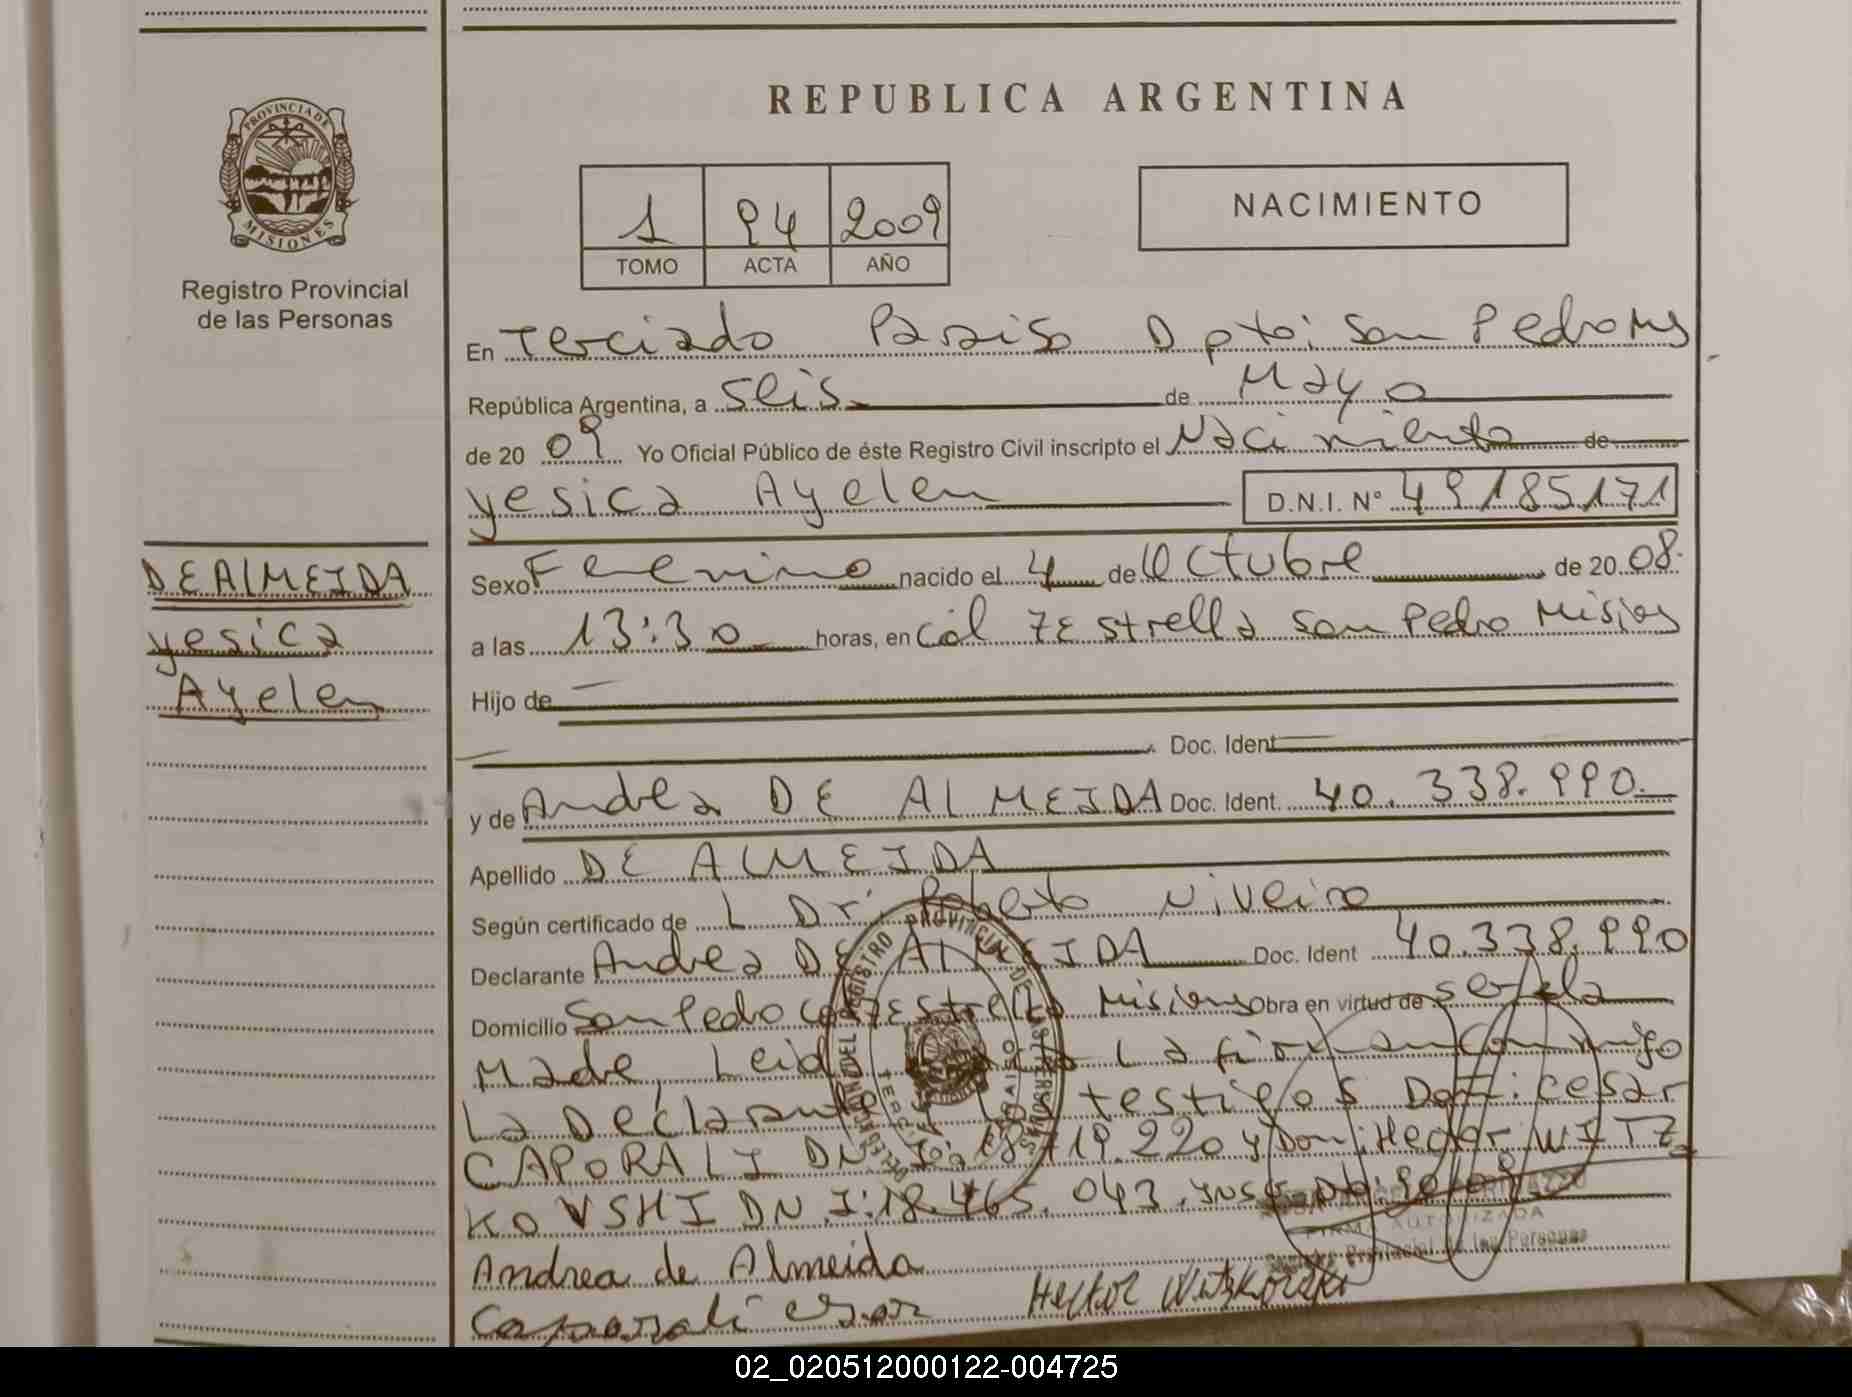 REPUBLICA ARGENTINA
PROVINCIA DE MISIONES
Registro Provincial
de las Personas
1 94 2009
TOMO ACTA AÑO
NACIMIENTO
En Terciado Paraiso Dpto: San Pedro Ms
República Argentina, a seis de Mayo
de 2009 Yo Oficial Público de éste Registro Civil inscripto el Nacimiento de
yesica Ayelen D.N.I. Nº 49185171
DE ALMEIDA
yesica
Ayelen
Sexo Femenino nacido el 4 de Octubre de 2008.
a las 13:30 horas, en Col 7 Estrella San Pedro Misiones
Hijo de
Doc. Ident
y de Andrea DE ALMEIDA Doc. Ident. 40.338.990.
Apellido DE ALMEIDA
Según certificado de L Dr: Roberto Niveiro
Declarante Andrea DE ALMEIDA Doc. Ident 40.338.990
Domicilio San Pedro Col 7 Estrella Misiones Obra en virtud de ser la
Madre, Leida La firman conmigo
La Declarante y Los testigos Don: Cesar
CAPORALI DNI: 18.719.220 y Don: Hector WITZ
KOVSKI DNI: 18.465.043.
FIRMA AUTORIZADA
Registro Provincial de las Personas
Andrea de Almeida
Caporali Cesar Hector Witzkovski
02_020512000122-004725